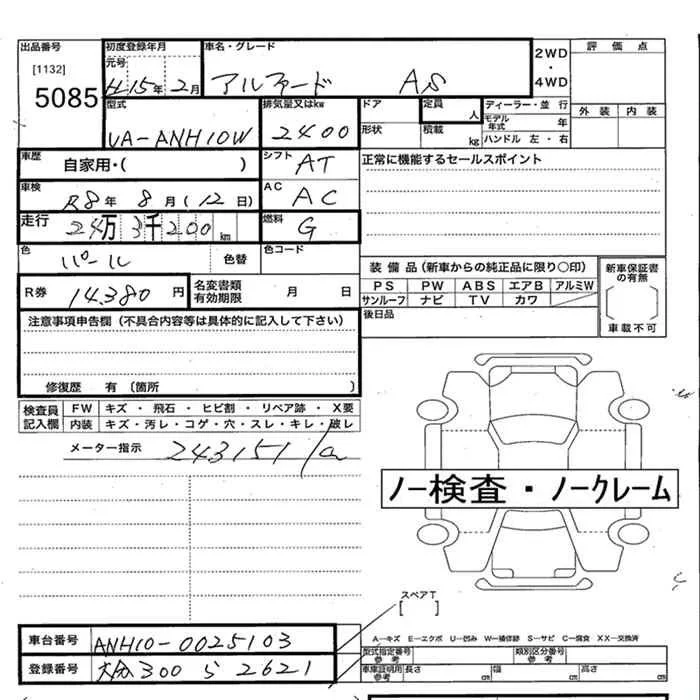 出品番号 初度登録年月 車名・グレード 2WD ・ 4WD 評価点
[1132] 元号
5085 H15年2月 アルファード AS
外装 内装
型式 排気量又はkw ドア 定員 人 ディーラー・並行
UA-ANH10W 2400 形状 積載 kg モデル年式 年
ハンドル 左・右
車歴 自家用・( ) シフト AT 正常に機能するセールスポイント
車検 R8年 8月(12日) AC AC
走行 24万3千200km 燃料 G
色 パール 色替 色コード
装備品(新車からの純正品に限り○印) 新車保証書の有無
R券 14.380円 名変書類有効期限 月 日
PS PW ABS エアB アルミW
サンルーフ ナビ TV カワ
車載不可
後日品
注意事項申告欄(不具合内容等は具体的に記入して下さい)
修復歴 有 〔箇所 〕
検査員記入欄 FW キズ・飛石・ヒビ割・リペア跡・X要
内装 キズ・汚レ・コゲ・穴・スレ・キレ・破レ
メーター指示 243151
ノー検査・ノークレーム
スペアT
[ ]
車台番号 ANH10-0025103
A―キズ E―エクボ U―凹み W―補修跡 S―サビ C―腐食 XX―交換済
登録番号 大分300 5 2621
型式指定番号 参考 類別区分番号 参考
車庫証明用 参考 長さ cm 幅 cm 高さ cm